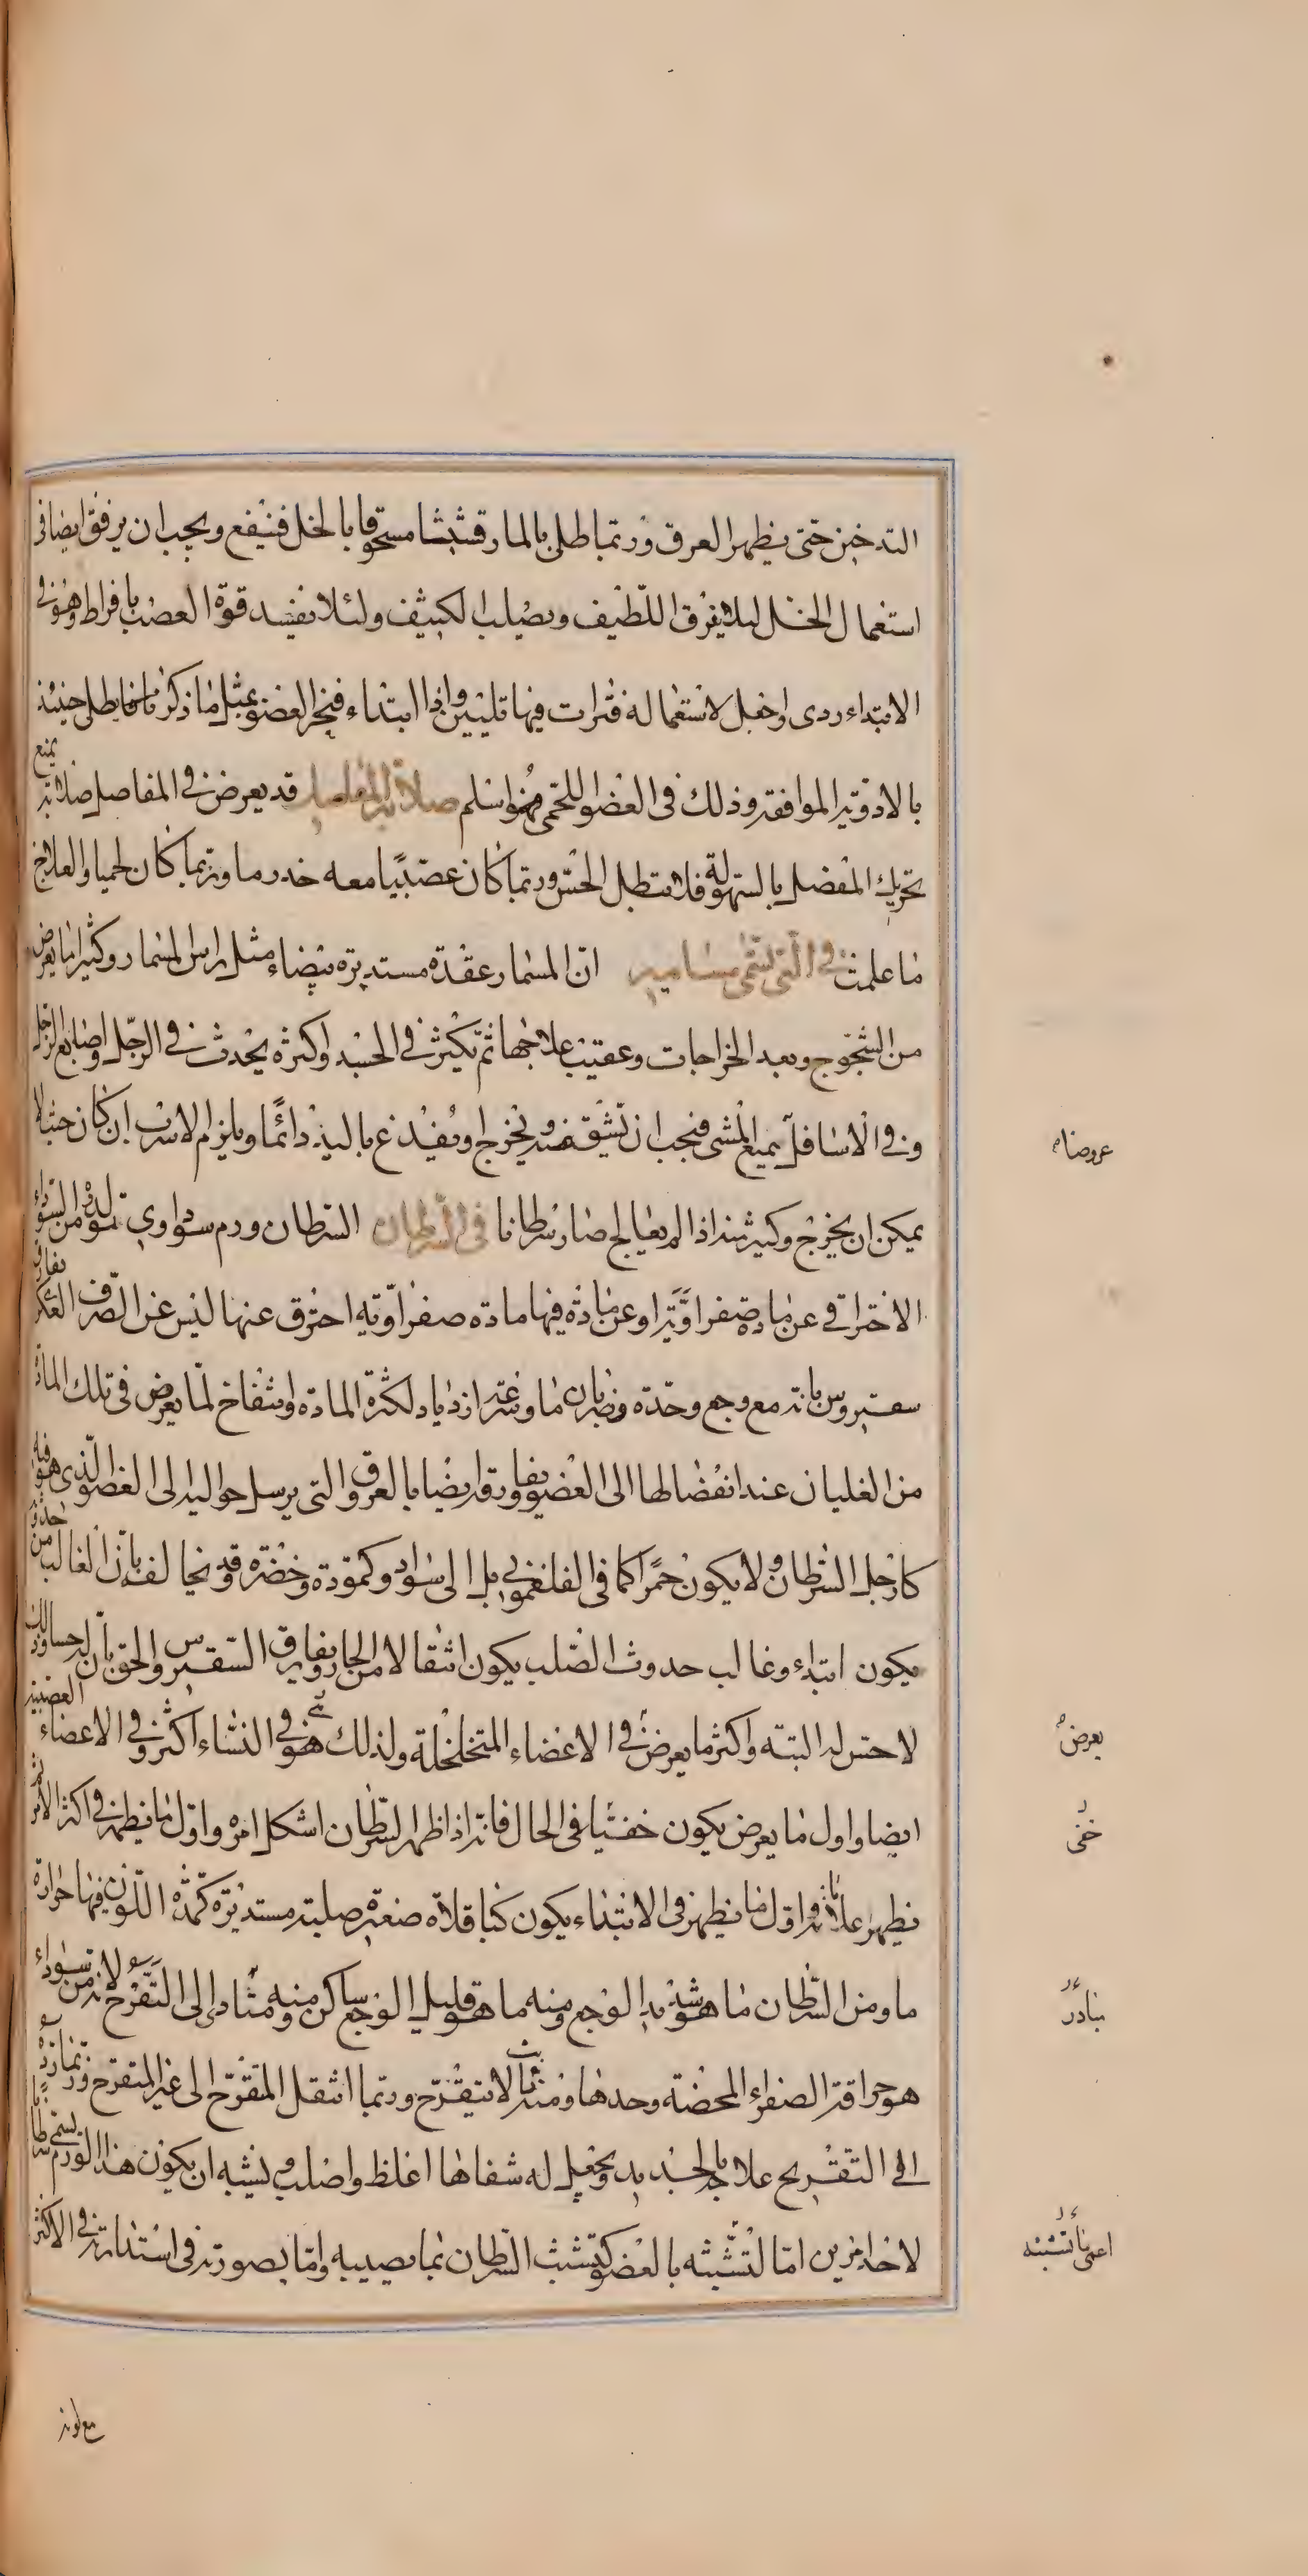 التدخين حتى يظهر العرق وربما طلى بالمارقشيشا مسحوقا بالخل فينفع ويجب ان يرفق ايضا فى
استعمال الخل ليلا يفرق اللطيف ويصلب الكثيف ولئلا يفسد قوة العصب بافراط وهو فى
الابتداء ردى واجعل لاستعماله فترات فيها تليين واذا ابتداء فبخر العضو بمثل ما ذكرنا فاطلى حينئذ
بالادوية الموافقة وذلك فى العضو اللحمى فهو اسلم صلابة المفاصل قد يعرض فى المفاصل صلابة يمنع
تحريك المفصل بالسهولة فلا تبطل الحس وربما كان عصبيا معه خدر ما وربما كان لحميا والعلاج
ما علمت فى التى تسمى مسامير ان المسمار عقدة مستديرة بيضاء مثل راس المسمار وكثيرا ما يعرض
من الشجوج وبعد الخراجات وعقيب علاجها ثم تكثر فى الجسد واكثره يحدث فى الرجل واصابع الرجل
وفى الاسافل يمنع المشى فيجب ان تشق عنه ويخرج او يفدغ باليد دائما ويلزم الاسرب ان كان حيث لا
يمكن ان يخرج وكثير منه اذا لم يعالج صار سرطانا فى السرطان السرطان ورم سوداوى تولده من السوداء
الاحتراقى عن مادة صفراوية او عن مادة فيها مادة صفراوية احترق عنها ليس عن الصرف العكر يفارق
سقيروس بانه مع وجع وحدة وضربان ما وسرعة ازدياد لكثرة المادة وانتفاخ لما يعرض فى تلك المادة
من الغليان عند انفصالها الى العضو يفارقه ايضا بالعروق التى يرسل حواليه الى العضو الذى هو فيه
كارجل السرطان ولا يكون حمرا كما فى الفلغمونى بل الى سواد وكمودة وخضرة وقد يخالفه بان الغالب من حدوثه
يكون ابتداء وغالب حدوث الصلب يكون انتقالا من الحار ويفارق السقيروس الحق بان له حسا وذلك
لا حس له البتة واكثر ما يعرض فى الاعضاء المتخلخلة ولذلك هو فى النساء اكثر وفى الاعضاء العصبية
ايضا واول ما يعرض يكون خفيا فى الحال فانه اذا ظهر السرطان اشكل امره واول ما يظهر فى اكثر الامر ثم
يظهر علاماته واول ما يظهر فى الابتداء يكون كباقلاة صغيرة صلبة مستديرة كمدة اللون فيها حرارة
ما ومن السرطان ما هو شديد الوجع ومنه ما هو قليل الوجع ساكن ومنه متادى الى التقرح لانه من سوداء
هو حراقة الصفراء المحضة وحدها ومنه ثابت لا يتقرح وربما انتقل المتقرح الى غير المتقرح وربما رده
الى التقريح علاج بالحديد ويجعل له شفاها اغلظ واصلب ويشبه ان يكون هذا الورم يسمى سرطانا
لاحد امرين اما لتشبثه بالعضو كتشبث السرطان بما يصيبه واما بصورته فى استدارته فى الاكثر
عروضا
يعرض
خفى
مبادر
اعنى ما تشبثه
مع لونه